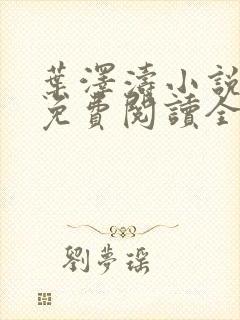 葉澤濤小說
免費閱讀全
劉夢瑤